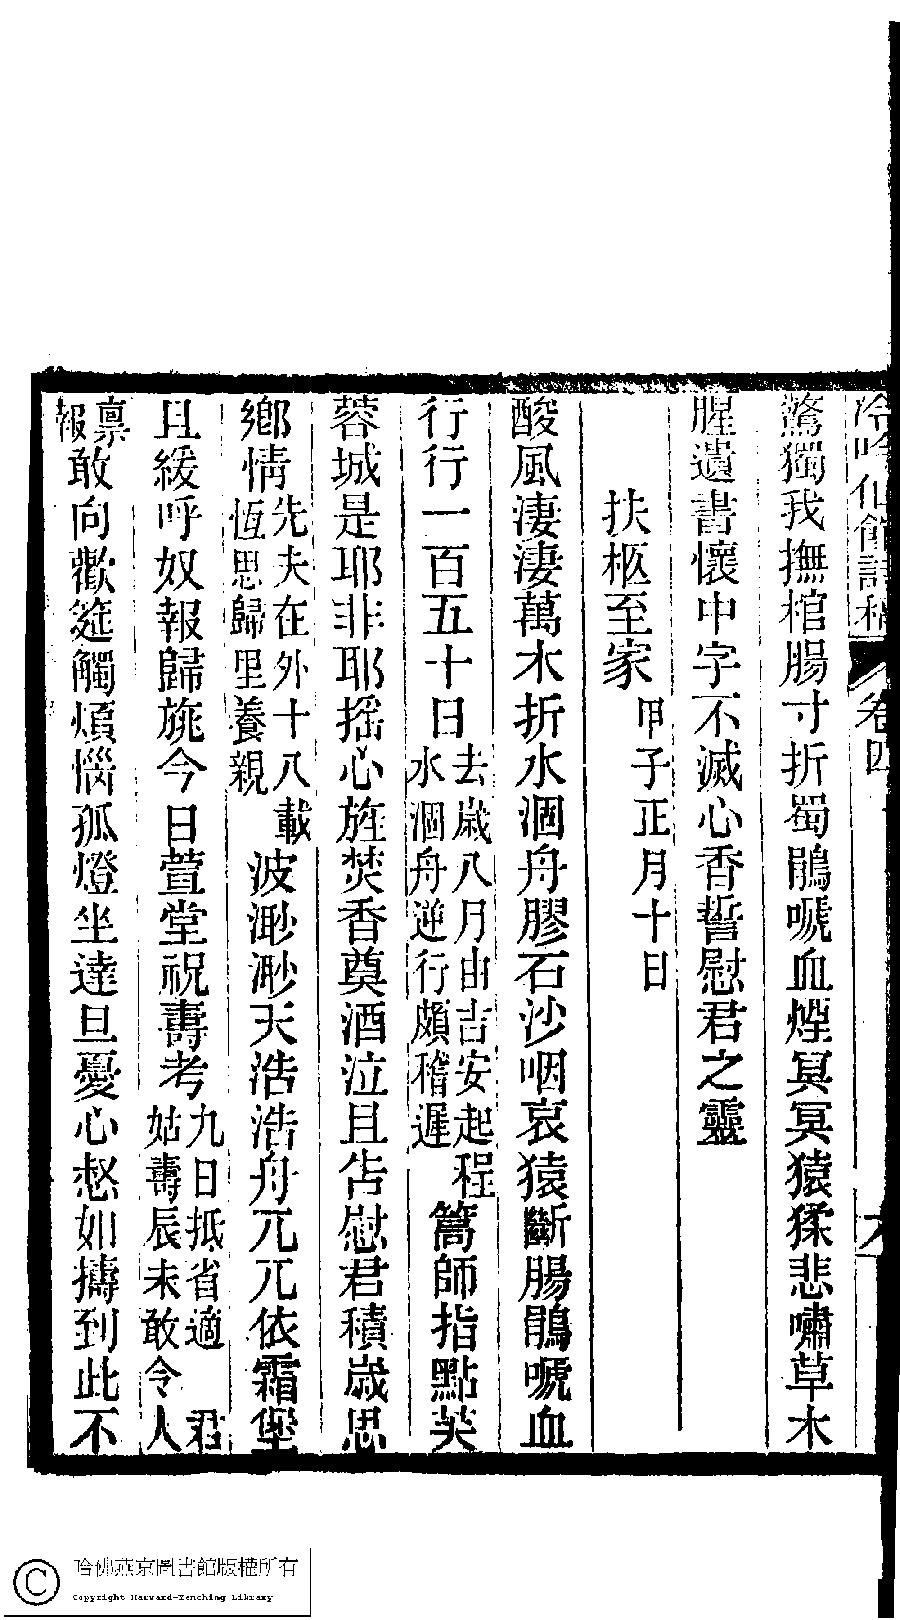 冷吟仙館詩稿 卷四
驚獨我撫棺腸寸折蜀鵑嗁血煙冥冥猿猱悲嘯草木
腥遺書懷中字不滅心香誓慰君之靈
扶柩至家甲子正月十日
酸風淒淒萬木折水涸舟膠石沙咽哀猿斷腸鵑嗁血
行行一百五十日去歲八月由吉安起程水涸舟逆行頗稽遲篙師指點芙
蓉城是耶非耶搖心旌焚香奠酒泣且告慰君積歲思
鄉情先夫在外十八載恆思歸里養親波渺渺天浩浩舟兀兀依霜堡
且緩呼奴報歸旐今日萱堂祝壽考九日抵省適 君姑壽辰未敢令人
稟報敢向歡筵觸煩惱孤燈坐達旦憂心惄如擣到此不
哈佛燕京圖書館版權所有
Copyright Harvard-Yenching Library